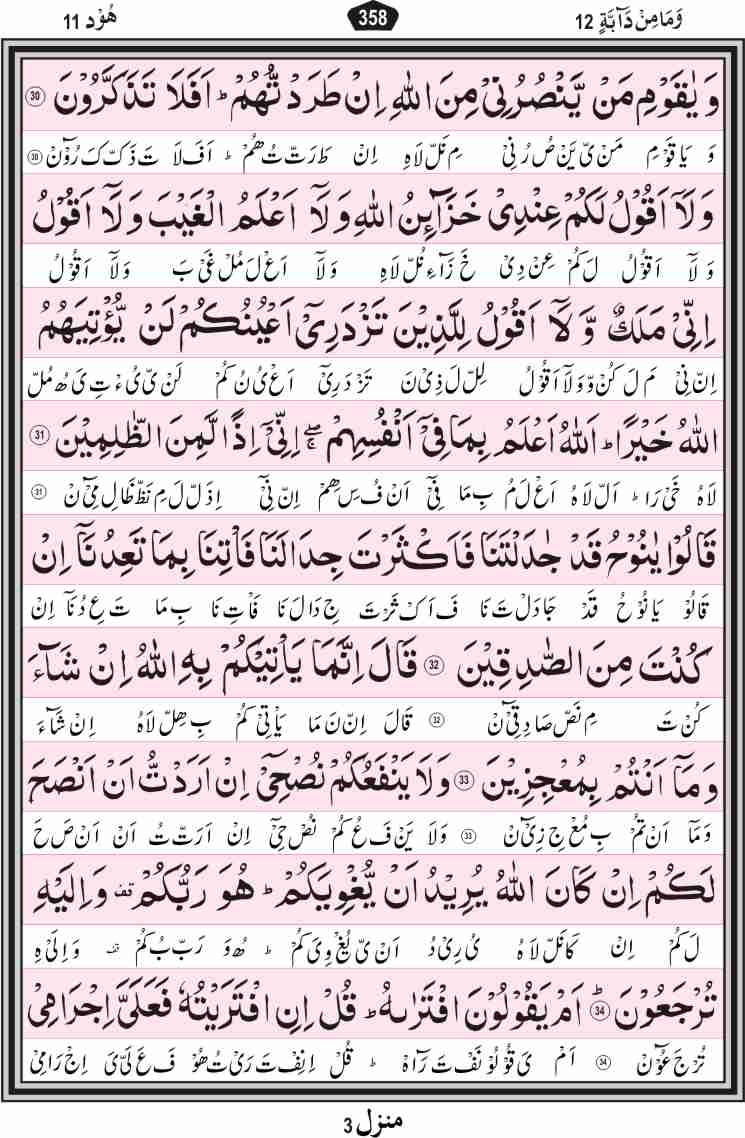 وَمَا مِنْ دَآبَّةٍ 12
358
هُوْد 11
وَ يٰقَوْمِ مَنْ يَّنْصُرُنِىْ مِنَ اللهِ اِنْ طَرَدْتُّهُمْ ؕ اَفَلَا تَذَكَّرُوْنَ 30
وَ يَا قَوْمِ مَنْ ىّ يَنْ صُ رُ نِىْ مِ نَلّ لَاهِ اِنْ طَ رَتّ تُ هُمْ ؕ اَفَ لَا تَ ذَكّ كَ رُوْٓنْ 30
وَ لَاۤ اَقُوْلُ لَكُمْ عِنْدِىْ خَزَآئِنُ اللهِ وَ لَاۤ اَعْلَمُ الْغَيْبَ وَ لَاۤ اَقُوْلُ
وَ لَاۤ اَ قُوْلُ لَ كُمْ عِنْ دِىْ خَ زَآ ءِ نُلّ لَاهِ وَ لَاۤ اَعْ لَ مُلْ غَىْ بَ وَ لَاۤ اَ قُوْلُ
اِنِّىْ مَلَكٌ وَّ لَاۤ اَقُوْلُ لِلَّذِيْنَ تَزْدَرِىْۤ اَعْيُنُكُمْ لَنْ يُّؤْتِيَهُمُ
اِنّ نِىْ مَ لَ كُنْ وّ وَ لَاۤ اَ قُوْلُ لِلّ لَ ذِىْ نَ تَزْ دَ رِىْۤ اَعْ يُ نُ كُمْ لَنْ ىّ يُ ءْ تِ يَ هُ مُلّ
اللهُ خَيْرًا ؕ اَللهُ اَعْلَمُ بِمَا فِىْۤ اَنْفُسِهِمْ ۖۚ اِنِّىْۤ اِذًا لَّمِنَ الظّٰلِمِيْنَ 31
لَاهُ خَىْ رَا ؕ اَلّ لَاهُ اَعْ لَ مُ بِ مَا فِىْۤ اَنْ فُ سِ هِمْ اِنّ نِىْۤ اِذَلّ لَ مِ نَظّ ظَالِ مِىْٓنْ 31
قَالُوْا يٰنُوْحُ قَدْ جٰدَلْتَنَا فَاَكْثَرْتَ جِدَالَنَا فَاْتِنَا بِمَا تَعِدُنَاۤ اِنْ
قَالُوْ يَا نُوْحُ قَدْ جَادَلْ تَ نَا فَ اَكْ ثَرْ تَ جِ دَالَ نَا فَاْ تِ نَا بِ مَا تَ عِ دُ نَاۤ اِنْ
كُنْتَ مِنَ الصّٰدِقِيْنَ 32 قَالَ اِنَّمَا يَاْتِيْكُمْ بِهِ اللهُ اِنْ شَآءَ
كُنْ تَ مِ نَصّ صَادِ قِىْٓنْ 32 قَالَ اِنّ نَ مَا يَاْ تِىْ كُمْ بِ هِلّ لَاهُ اِنْ شَآءَ
وَمَاۤ اَنْتُمْ بِمُعْجِزِيْنَ 33 وَلَا يَنْفَعُكُمْ نُصْحِىْۤ اِنْ اَرَدْتُّ اَنْ اَنْصَحَ
وَ مَاۤ اَنْ تُمْ بِ مُعْ جِ زِىْٓنْ 33 وَ لَا يَنْ فَ عُ كُمْ نُصْ حِىْۤ اِنْ اَرَتّ تُ اَنْ اَنْ صَ حَ
لَكُمْ اِنْ كَانَ اللهُ يُرِيْدُ اَنْ يُّغْوِيَكُمْ ؕ هُوَ رَبُّكُمْ قف وَاِلَيْهِ
لَ كُمْ اِنْ كَا نَلّ لَاهُ يُ رِىْ دُ اَنْ ىّ يُغْ وِىَ كُمْ ؕ هُوَ رَبّ بُ كُمْ قف وَ اِلَىْ هِ
تُرْجَعُوْنَ ؕ 34 اَمْ يَقُوْلُوْنَ افْتَرٰىهُ ؕ قُلْ اِنِ افْتَرَيْتُهٗ فَعَلَىَّ اِجْرَامِىْ
تُرْ جَ عُوْٓنْ 34 اَمْ ىَ قُوْ لُوْ نَفْ تَ رَاهُ ؕ قُلْ اِنِفْ تَ رَىْ تُ هُوْ فَ عَ لَىّ ىَ اِجْ رَا مِىْ
منزل 3